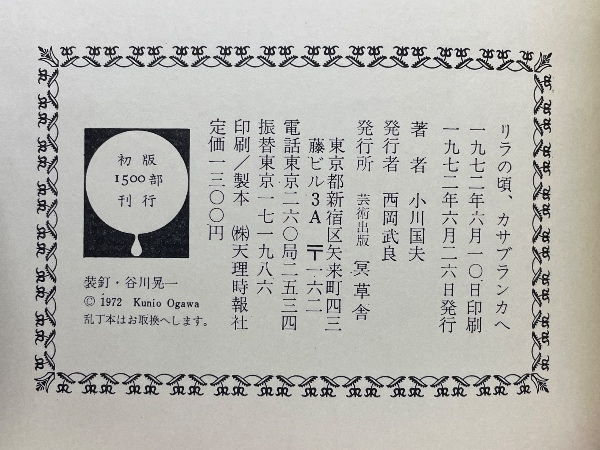 リラの頃、カサブランカへ
一九七二年六月一〇日印刷
一九七二年六月二六日発行
著者 小川国夫
発行者 西岡武良
発行所 芸術出版 冥草舎
東京都新宿区矢来町四三
藤ビル3A 〒一六二
電話東京二六〇局二五三四
振替東京一七一九八六
印刷/製本 ㈱天理時報社
定価一三〇〇円
初版
1500部
刊行
装釘・谷川晃一
© 1972 Kunio Ogawa
乱丁本はお取換へします。